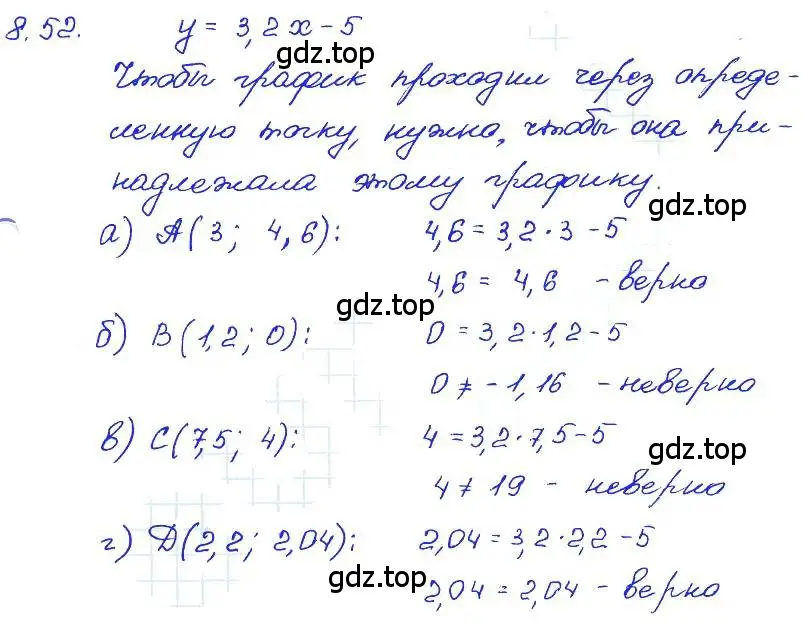 8.52. y = 3,2x - 5
Чтобы график проходил через опреде-
ленную точку, нужно, чтобы она при-
надлежала этому графику.
а) A(3; 4,6): 4,6 = 3,2 · 3 - 5
4,6 = 4,6 - верно
б) B(1,2; 0): 0 = 3,2 · 1,2 - 5
0 ≠ -1,16 - неверно
в) C(7,5; 4): 4 = 3,2 · 7,5 - 5
4 ≠ 19 - неверно
г) D(2,2; 2,04): 2,04 = 3,2 · 2,2 - 5
2,04 = 2,04 - верно
gdz.top
gdz.top
gdz.top
gdz.top
gdz.top